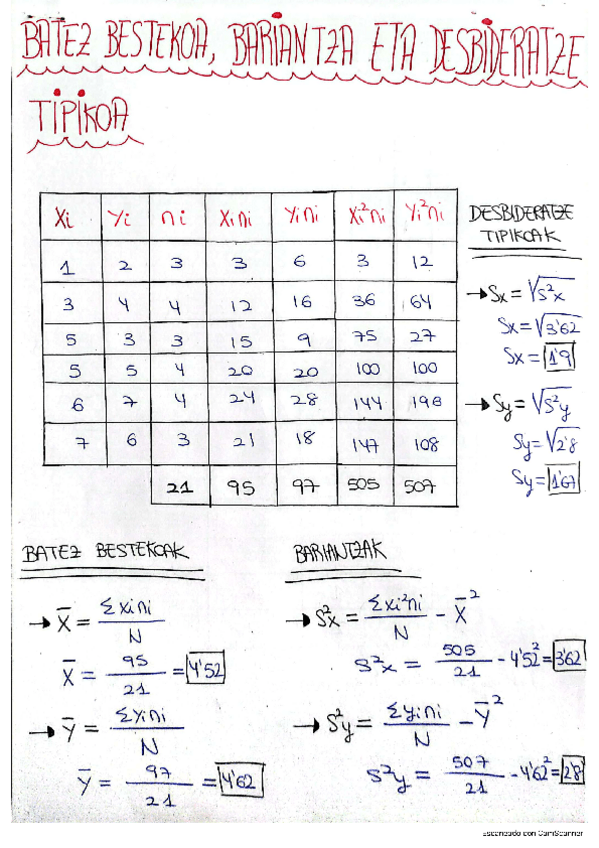 BATEZ BESTEKOA, BARIANTZA ETA DESBIDERATZE
TIPIKOA
Xi Yi ni Xini Yini Xi²ni Yi²ni
1 2 3 3 6 3 12
3 4 4 12 16 36 64
5 3 3 15 9 75 27
5 5 4 20 20 100 100
6 7 4 24 28 144 196
7 6 3 21 18 147 108
21 95 97 505 507
DESBIDERATZE
TIPIKOAK
→ Sx = √S²x
Sx = √3'62
Sx = 1'9
→ Sy = √S²y
Sy = √2'8
Sy = 1'67
BATEZ BESTEKOAK
→ X̄ = Σxini / N
X̄ = 95 / 21 = 4'52
→ Ȳ = Σyini / N
Ȳ = 97 / 21 = 4'62
BARIANTZAK
→ S²x = Σxi²ni / N - X̄²
S²x = 505 / 21 - 4'52² = 3'62
→ S²y = Σyini / N - Ȳ²
S²y = 507 / 21 - 4'62² = 2'8
Escaneado con CamScanner